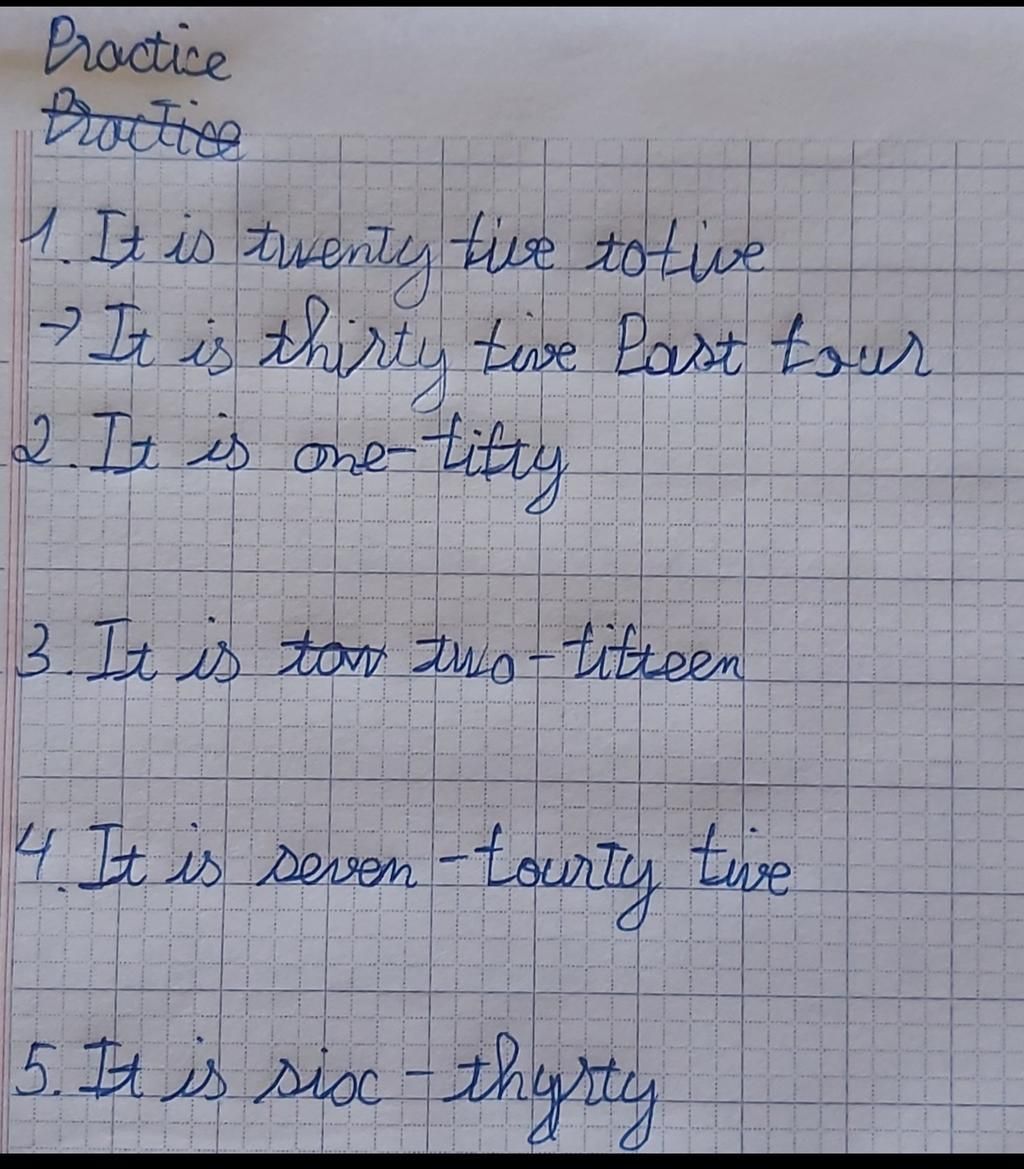 Practice
Practice
1. It is twenty five to five
→ It is thirty five Past four
2. It is one-fifty
3. It is tow two-fifteen
4. It is seven-fourty five
5. It is six-thyrty